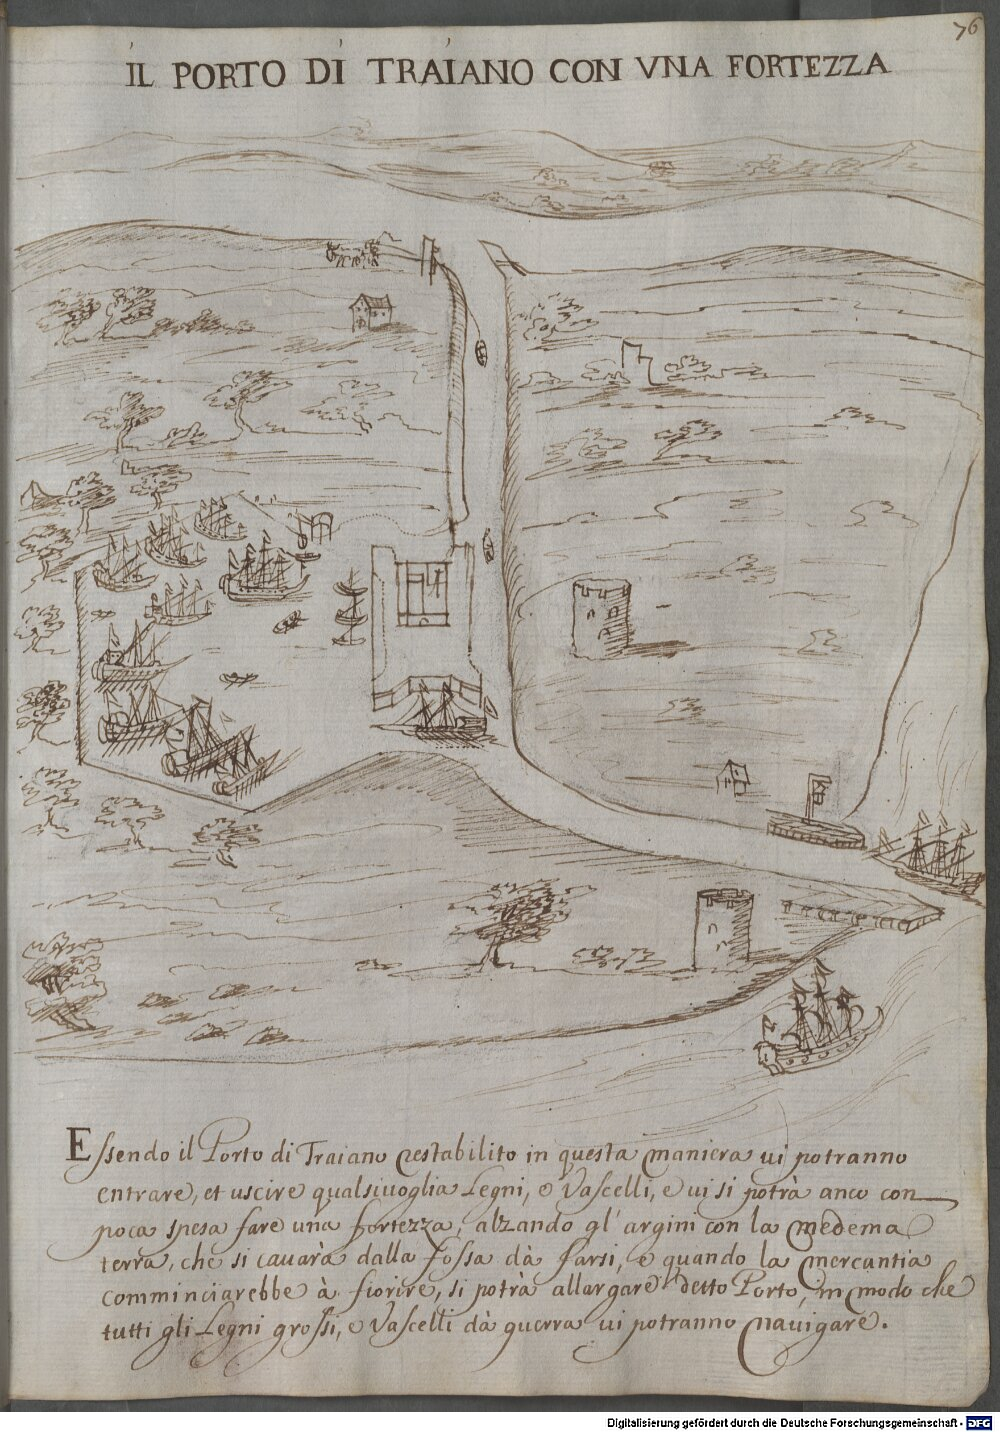 76
IL PORTO DI TRAIANO CON VNA FORTEZZA
Essendo il Porto di Traiano restabilito in questa maniera ui potranno
entrare, et uscire qualsiuoglia Legni, e Vascelli, e ui si potrà anco con
poca spesa fare una fortezza, alzando gl'argini con la medema
terra, che si cauarà dalla fossa dà farsi, e quando la mercantia
comminciarebbe à fiorire, si potrà allargare detto Porto, in modo che
tutti gli Legni grossi, e Vascelli dà guerra ui potranno nauigare.
Digitalisierung gefördert durch die Deutsche Forschungsgemeinschaft - DFG